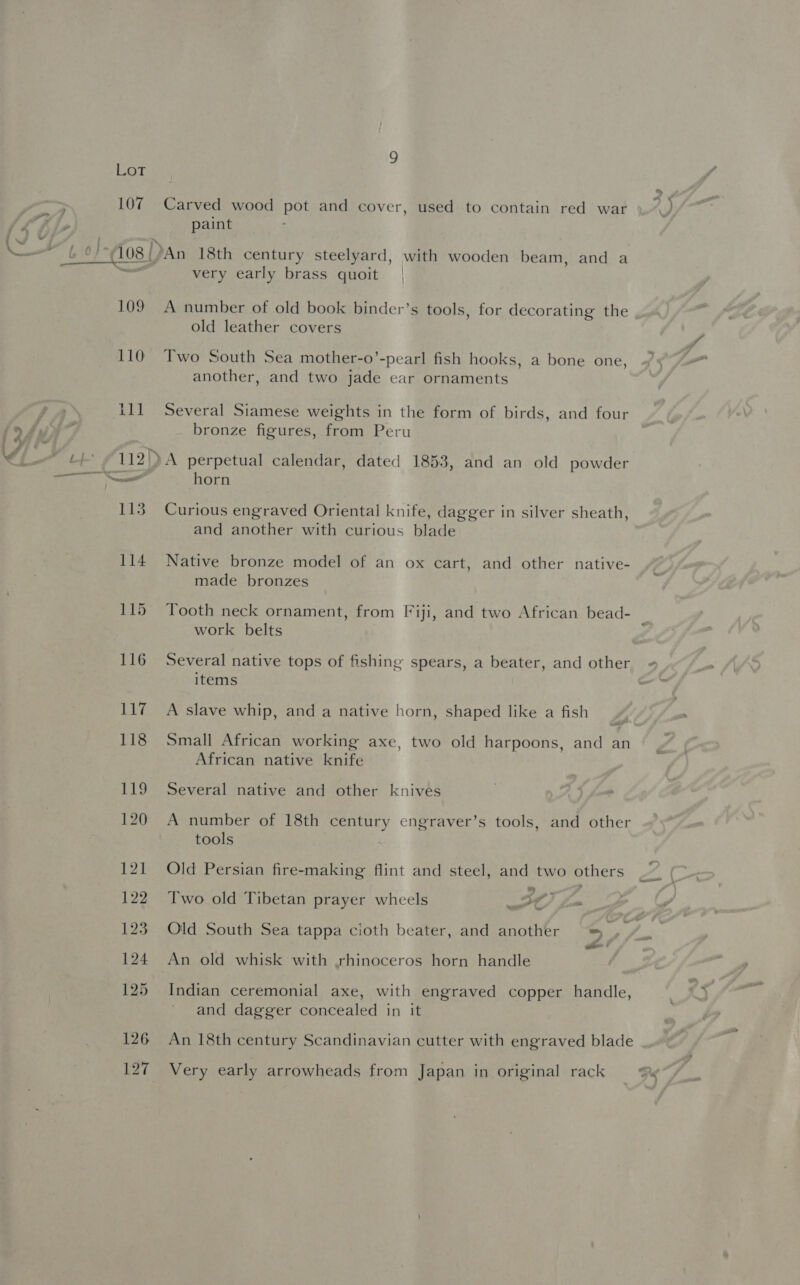 9
LOT
107 Carved wood pot and cover, used to contain red war
paint
108 An 18th century steelyard, with wooden beam, and a
very early brass quoit
109 A number of old book binder's tools, for decorating the
old leather covers
110 Two South Sea mother-o'-pearl fish hooks, a bone one,
another, and two jade ear ornaments
111 Several Siamese weights in the form of birds, and four
bronze figures, from Peru
112 A perpetual calendar, dated 1853, and an old powder
horn
113 Curious engraved Oriental knife, dagger in silver sheath,
and another with curious blade
114 Native bronze model of an ox cart, and other native-
made bronzes
115 Tooth neck ornament, from Fiji, and two African bead-
work belts
116 Several native tops of fishing spears, a beater, and other
items
117 A slave whip, and a native horn, shaped like a fish
118 Small African working axe, two old harpoons, and an
African native knife
119 Several native and other knives
120 A number of 18th century engraver's tools, and other
tools
121 Old Persian fire-making flint and steel, and two others
122 Two old Tibetan prayer wheels
123 Old South Sea tappa cloth beater, and another
124 An old whisk with rhinoceros horn handle
125 Indian ceremonial axe, with engraved copper handle,
and dagger concealed in it
126 An 18th century Scandinavian cutter with engraved blade
127 Very early arrowheads from Japan in original rack